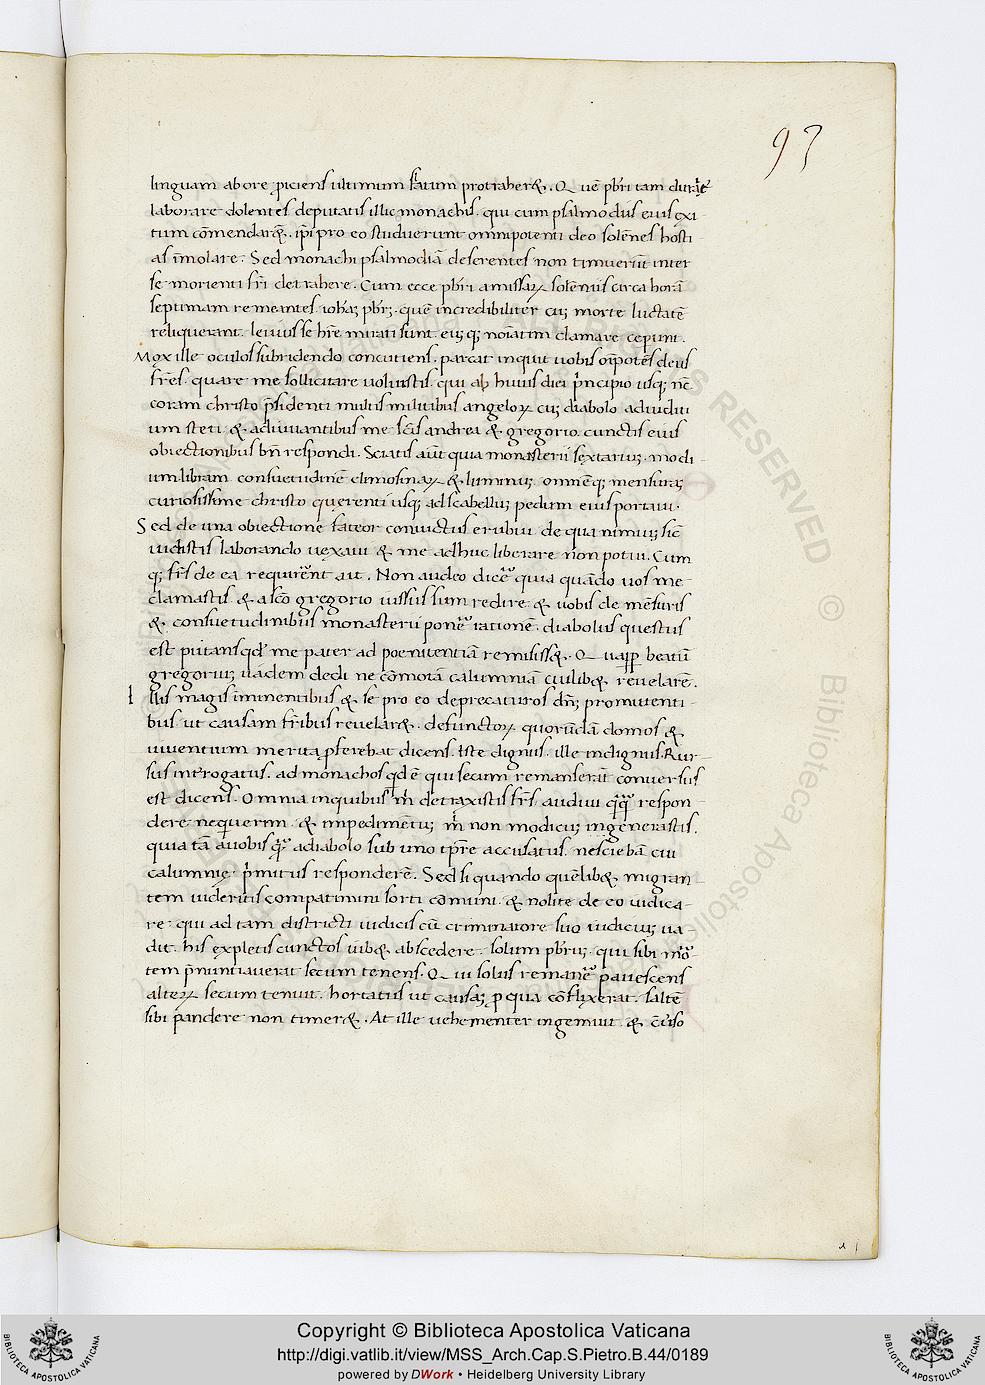 93
linguam ab ore ꝓiciens ultimum flatum protraher&. Quē pbr̄i tam durat̄
laborare dolentes deputatis illic monachis. qui cum psalmodiis eius exi-
tum cōmendar&. ipi pro eo studuerunt omnipotenti deo solēnes hosti
as īmolare. Sed monachi psalmodiā deserentes non timuerūt inter
se morienti fr̄i detrahere. Cum ecce pbr̄i a missaꝝ solēniis circa horā
septimam remeantes. ioh̄aꝫ pbr̄ꝫ. quē incredibiliter cuꝫ morte luctatē
reliquerant. leuius se hr̄e mirati sunt. eiusqꝫ noīatim clamare cepunt.
Mox ille oculos subridendo concutiens. parcat inquit uobis om̄potēs deus
fr̄es. quare me sollicitare uoluistis. qui ab huius diei p̄ncipio usqꝫ nc̄
coram christo p̄sidenti multis militibus angeloꝝ cuꝫ diabolo ad iuditi
um steti. &. adiuuantibus me scīs andrea & gregorio. cunctis eius
obiectionibus bn̄ respondi. Sciatis aūt quia monasterii sextarius. modi-
um libram consuetudinē elimosinaꝝ. & luminiꝫ. omnēqꝫ mensuraꝫ
curiosissime christo querenti usqꝫ ad scabelluꝫ pedum eius portaui.
Sed de una obiectione fateor conuictus erubui. de qua nimiuꝫ sic̄
uidistis laborando uexaui & me adhuc liberare non potui. Cum
qꝫ fr̄es de ea requirēnt ait. Non audeo dicē quia quādo uos me
clamastis. & a scō gregorio iussus sum redire & uobis de mēsuris
& consuetudinibus monasterii ponē rationē. diabolus questus
est putans qd̄ me pater ad poenitentiā remisiss&. Quapp̄ beatū
gregoriuꝫ uadem dedi ne cōmotā calumniā cuilib& reuelarē.
Illis magis īminentibus & se pro eo deprecaturos dn̄ꝫ promittenti-
bus. ut causam fr̄ibus reuelar&. defunctoꝝ quorūdā domos &
uiuentium merita p̄ferebat dicens. Iste dignus. ille indignus. Rur-
sus interogatus. ad monachos qd̄ ē qui secum remanserāt conuersus
est dicens. Omnia inquibus m̄ detraxistis fr̄s. audiui respon-
dere nequerim. & impedimētuꝫ m̄ non modicuꝫ ingenerastis.
quia tā auobis adiabolo sub uno tpr̄e accusatus. nesciebā cui
calumnię. p̄mitus responderē. Sed si quando quēlib& migran-
tem uideritis compatimini sorti cōmuni. & nolite de eo iudica-
re. qui ad tam districti iudicis cū criminatore suo iudiciuꝫ ua-
dit. his expletis cunctos iub& abscedere. solum pbr̄uꝫ. qui sibi mo
tem p̄nuntiauerat secum tenens. Qui solus remanē pauescens
alteꝝ secum tenuit. hortatus ut causaꝫ ꝓ qua cōflixerat. saltē
sibi pandere non timer&. At ille uehementer ingemuit. & cūiso
Copyright © Biblioteca Apostolica Vaticana
http://digi.vatlib.it/view/MSS_Arch.Cap.S.Pietro.B.44/0189
powered by DWork • Heidelberg University Library